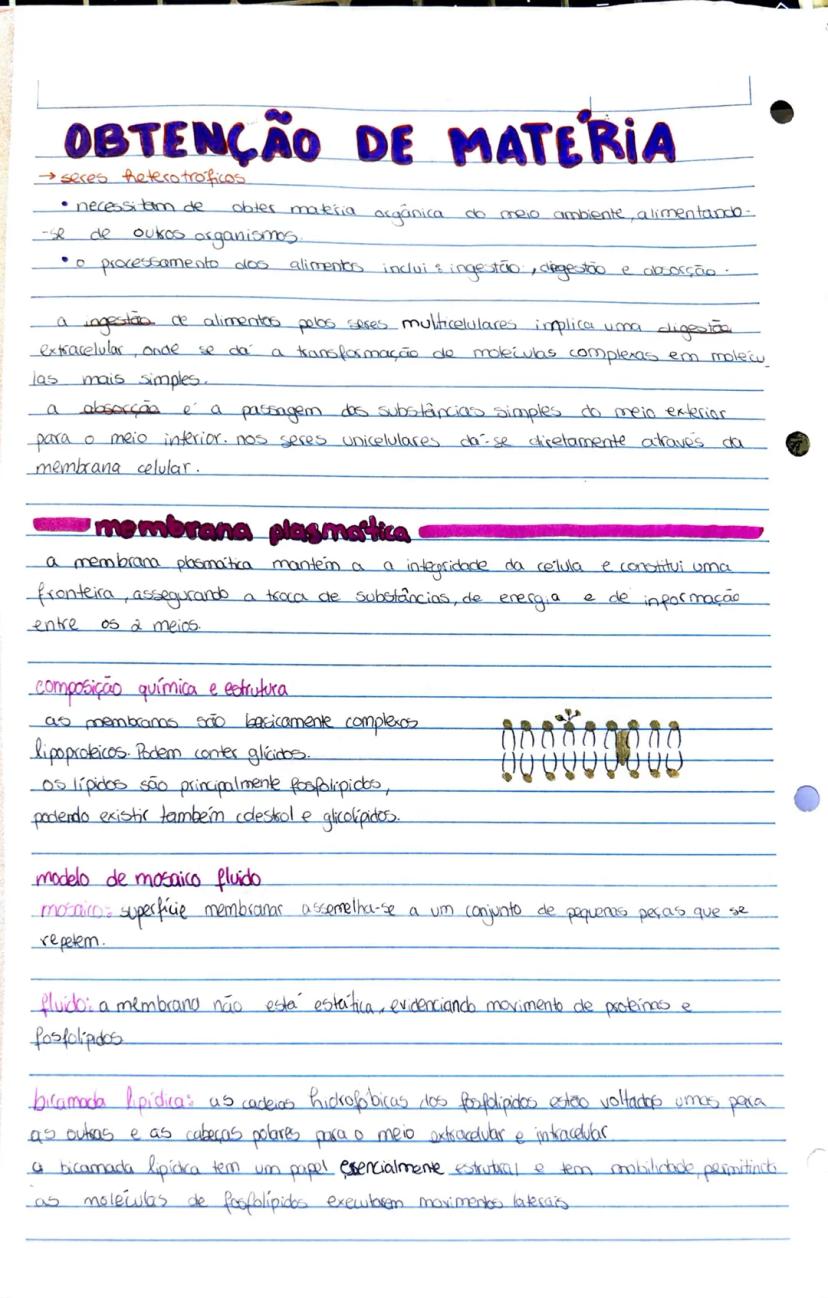 OBTENÇÃO DE MATÉRIA
→ seres heterotróficos
• necessitam de obter matéria orgânica do meio ambiente, alimentando-
-se de outros organismos.
• o processamento dos alimentos inclui: ingestão, digestão e absorção.
a ingestão de alimentos pelos seres multicelulares implica uma digestão
extracelular, onde se dá a transformação de moléculas complexas em molécu_
las mais simples.
a absorção é a passagem das substâncias simples do meio exterior
para o meio interior. nos seres unicelulares dá-se diretamente através da
membrana celular.
membrana plasmática
a membrana plasmática mantém a a integridade da célula e constitui uma
fronteira, assegurando a troca de substâncias, de energia e de informação
entre os 2 meios.
composição química e estrutura
as membranas são basicamente complexos
lipoproteicos. Podem conter glícidos.
os lípidos são principalmente fosfolípidos,
podendo existir também colestrol e glicolípidos.
modelo de mosaico fluido
mosaico: superfície membranar assemelha-se a um conjunto de pequenas peças que se
repetem.
fluido: a membrana não está estática, evidenciando movimento de proteínas e
fosfolípidos
bicamada lipídica: as cadeias hidrofóbicas dos fosfolípidos estão voltadas umas para
as outras e as cabeças polares para o meio extracelular e intracelular
a bicamada lipídica tem um papel esencialmente estrutural e tem mobilidade, permitindo
as moléculas de fosfolípidos executarem movimentos laterais